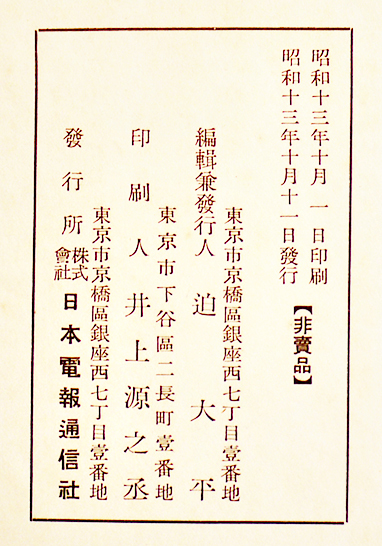 昭和十三年十月 一 日印刷
昭和十三年十月十一日發行
【非賣品】
東京市京橋區銀座西七丁目壹番地
編輯兼發行人 迫 大平
東京市下谷區二長町壹番地
印刷人 井上源之丞
東京市京橋區銀座西七丁目壹番地
發行所 株式會社 日本電報通信社